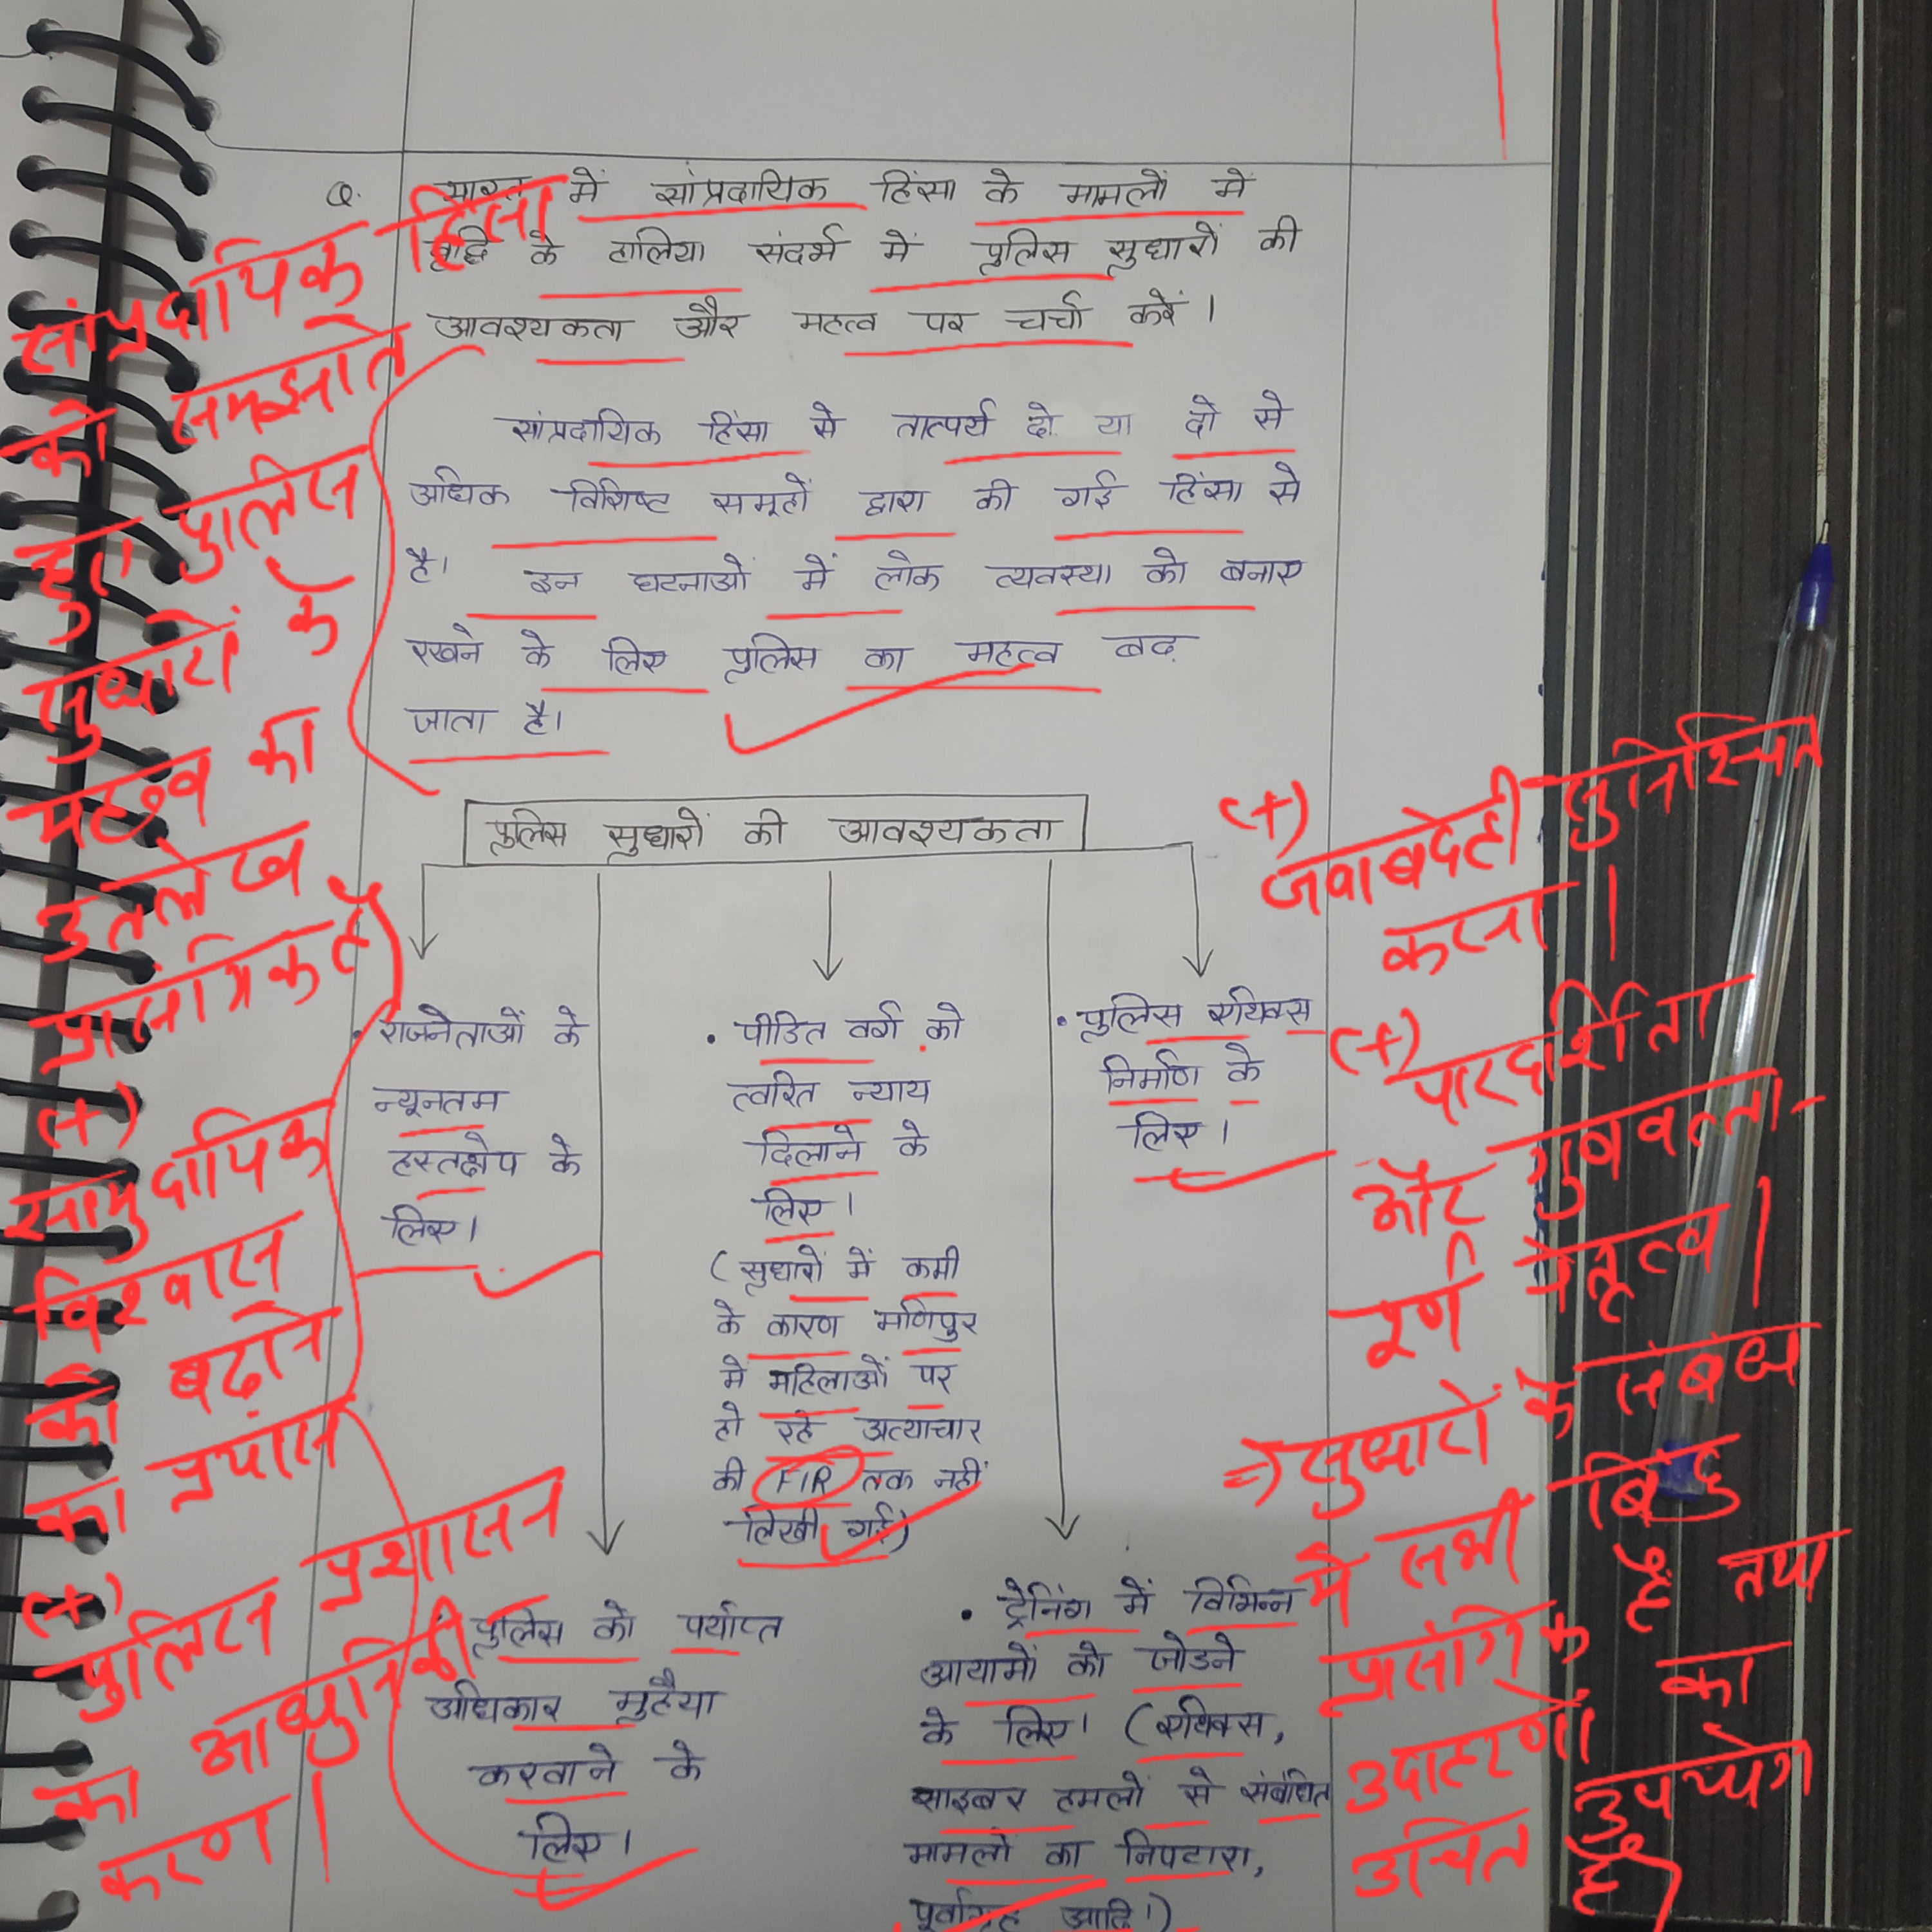 Q. भारत में सांप्रदायिक हिंसा के मामलों में
वृद्धि के हालिया संदर्भ में पुलिस सुधारों की
आवश्यकता और महत्व पर चर्चा करें।
सांप्रदायिक हिंसा से तात्पर्य दो या दो से
अधिक विशिष्ट समूहों द्वारा की गई हिंसा से
है। इन घटनाओं में लोक व्यवस्था को बनाए
रखने के लिए पुलिस का महत्व बढ़
जाता है।
पुलिस सुधारों की आवश्यकता
• राजनेताओं के
न्यूनतम
हस्तक्षेप के
लिए।
• पीडित वर्ग को
त्वरित न्याय
दिलाने के
लिए।
(सुधारों में कमी
के कारण मणिपुर
में महिलाओं पर
हो रहे अत्याचार
की FIR तक नहीं
लिखी गई)
• पुलिस एथिक्स
निर्माण के
लिए।
• पुलिस को पर्याप्त
अधिकार मुहैया
करवाने के
लिए।
• ट्रेनिंग में विभिन्न
आयामों को जोडने
के लिए। (एथिक्स,
साइबर हमलों से संबंधित
मामलों का निपटारा,
पूर्वाग्रह आदि।)
सांप्रदायिक हिंसा
को समझाते
हुए पुलिस
सुधारों के
महत्व का
उल्लेख
प्रासंगिक है
(+)
सामुदायिक
विश्वास
को बढ़ाने
का प्रयास
(+)
पुलिस प्रशासन
का आधुनिकी
करण।
(+)
जवाबदेही सुनिश्चित
करना।
(+)
पारदर्शिता
और गुणवत्ता-
पूर्ण नेतृत्व।
=> सुधारों के संबंध
में सभी बिंदु
प्रासंगिक हैं तथा
उदाहरणों का
उचित उपयोग
है